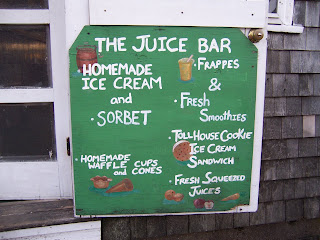 THE JUICE BAR
HOMEMADE
ICE CREAM
and
· SORBET
· HOMEMADE
WAFFLE CUPS
and CONES
· FRAPPES
&
· FRESH
SMOOTHIES
· TOLL HOUSE COOKIE
ICE CREAM
SANDWICH
· FRESH SQUEEZED
JUICES